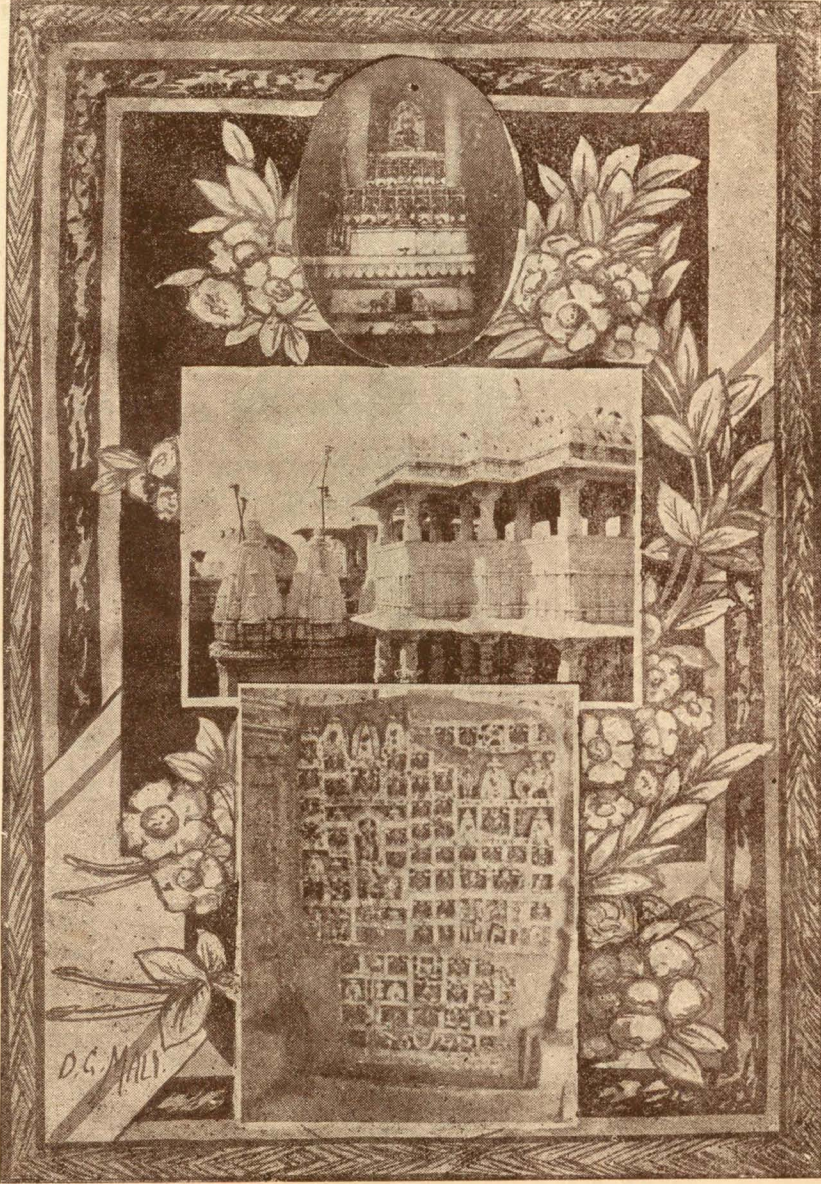 D.G. MALI.